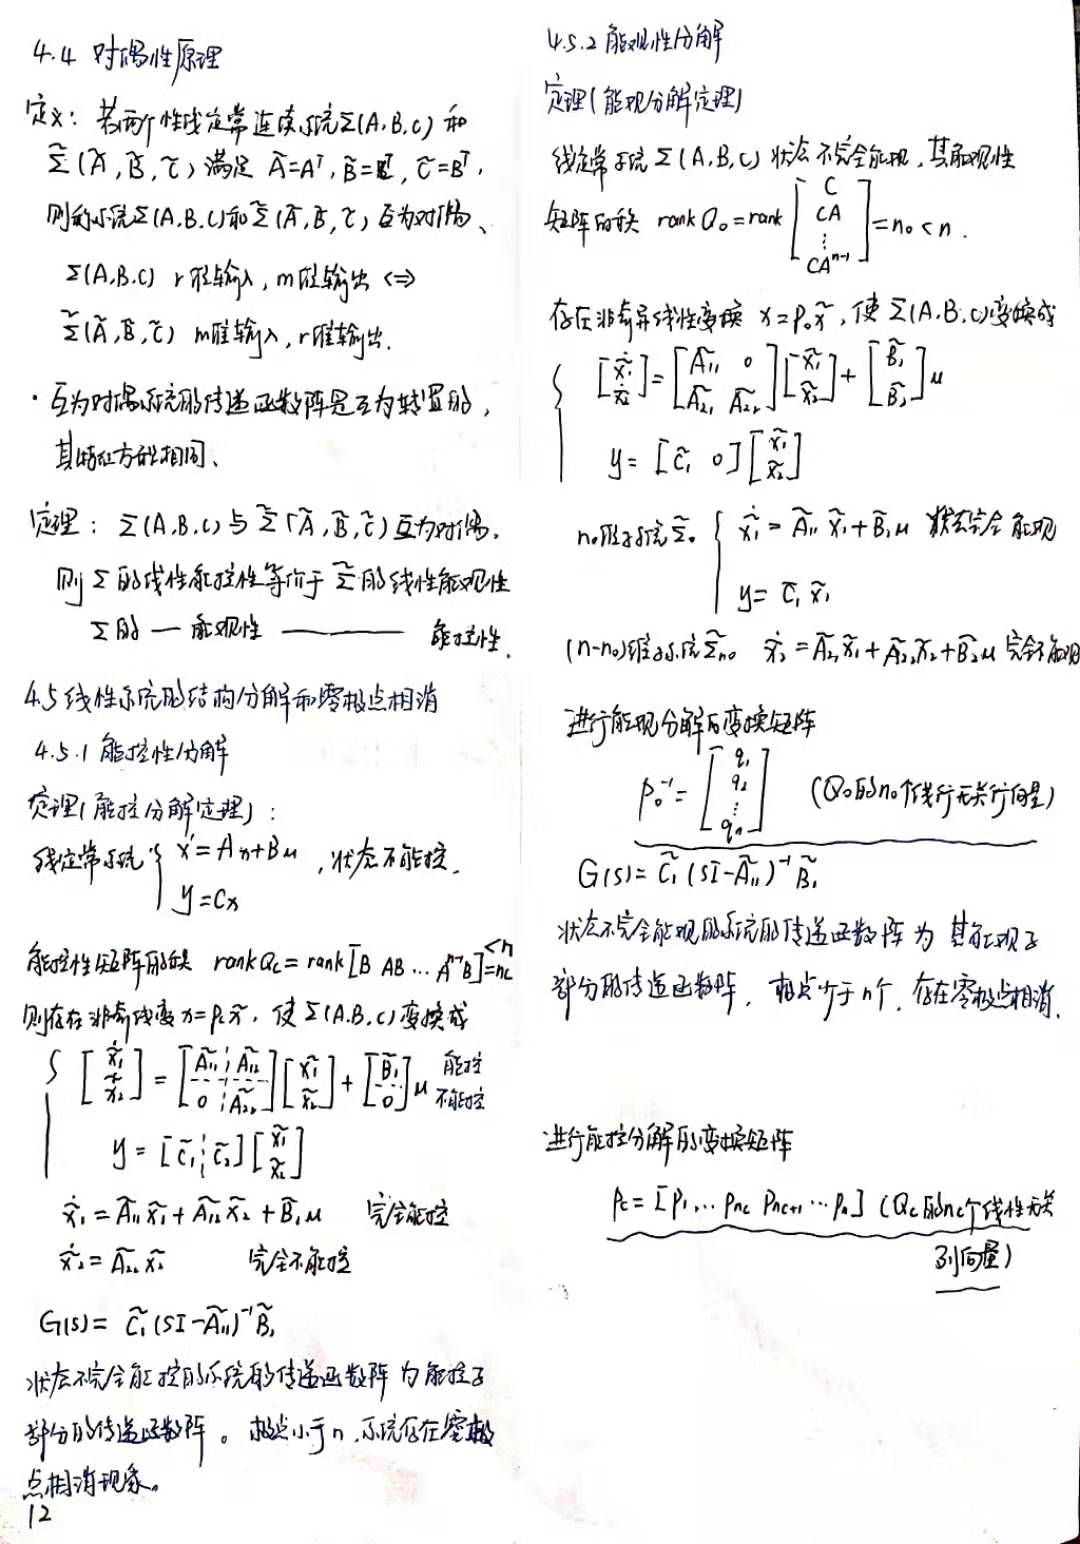 4.4 对偶性原理
定义：若两个性线定常连续系统Σ(A,B,C) 和
Σ̃(Ã,B̃,C̃) 满足 Ã=Aᵀ, B̃=Cᵀ, C̃=Bᵀ,
则称系统Σ(A,B,C)和Σ̃(Ã,B̃,C̃) 互为对偶、
Σ(A,B,C) r维输入, m维输出 ⇔
Σ̃(Ã,B̃,C̃) m维输入, r维输出.
· 互为对偶系统的传递函数阵是互为转置的,
其特征方程相同、
定理: Σ(A,B,C) 与 Σ̃(Ã,B̃,C̃) 互为对偶,
则Σ的线性能控性等价于Σ̃的线性能观性
Σ的 — 能观性 ——— 能控性.
4.5 线性系统的结构分解和零极点相消
4.5.1 能控性分解
定理(能控分解定理):
线定常系统 { ẋ=Ax+Bu , 状态不能控.
y=Cx
能控性矩阵的秩 rank Qc = rank[B AB … Aⁿ⁻¹B]=nc <n
则存在非奇线变 x=Pc x̃, 使Σ(A,B,C)变换成
{ [x̃̇₁ x̃̇₂] = [Ã₁₁ Ã₁₂ 0 Ã₂₂][x̃₁ x̃₂] + [B̃₁ 0]u 能控 不能控
y = [C̃₁ C̃₂][x̃₁ x̃₂]
x̃̇₁ = Ã₁₁x̃₁ + Ã₁₂x̃₂ + B̃₁u 完全能控
x̃̇₂ = Ã₂₂x̃₂ 完全不能控
G(s) = C̃₁(SI-Ã₁₁)⁻¹B̃₁
状态不完全能控的系统的传递函数阵为能控子
部分的传递函数阵。极点小于n,系统存在零极
点相消现象。
12
4.5.2 能观性分解
定理(能观分解定理)
线定常系统Σ(A,B,C) 状态不完全能观, 其能观性
矩阵的秩 rank Q₀ = rank [C CA ⋮ CAⁿ⁻¹] = n₀ < n .
存在非奇异线性变换 x=P₀x̃, 使Σ(A,B,C)变换成
{ [x̃̇₁ x̃̇₂] = [Ã₁₁ 0 Ã₂₁ Ã₂₂][x̃₁ x̃₂] + [B̃₁ B̃₂]u
y = [C̃₁ 0][x̃₁ x̃₂]
n₀维子系统Σ̃₀ { x̃̇₁ = Ã₁₁x̃₁ + B̃₁u 状态完全能观
y = C̃₁x̃₁
(n-n₀)维子系统Σ̃n₀ x̃̇₂ = Ã₂₁x̃₁ + Ã₂₂x̃₂ + B̃₂u 完全不能观
进行能观分解的变换矩阵
P₀⁻¹ = [q₁ q₂ ⋮ qn] (Q₀的n₀个线行无关行向量)
G(s) = C̃₁(SI-Ã₁₁)⁻¹B̃₁
状态不完全能观的系统的传递函数阵为其能观子
部分的传递函数阵, 极点少于n个, 存在零极点相消.
进行能控分解的变换矩阵
Pc = [P₁… Pnc Pnc+1 … Pn] (Qc的nc个线性无关
列向量)